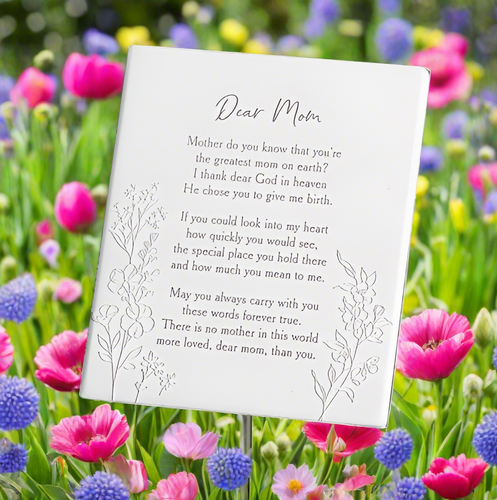 Dear Mom
Mother do you know that you're
the greatest mom on earth?
I thank dear God in heaven
He chose you to give me birth.
If you could look into my heart
how quickly you would see,
the special place you hold there
and how much you mean to me.
May you always carry with you
these words forever true.
There is no mother in this world
more loved, dear mom, than you.